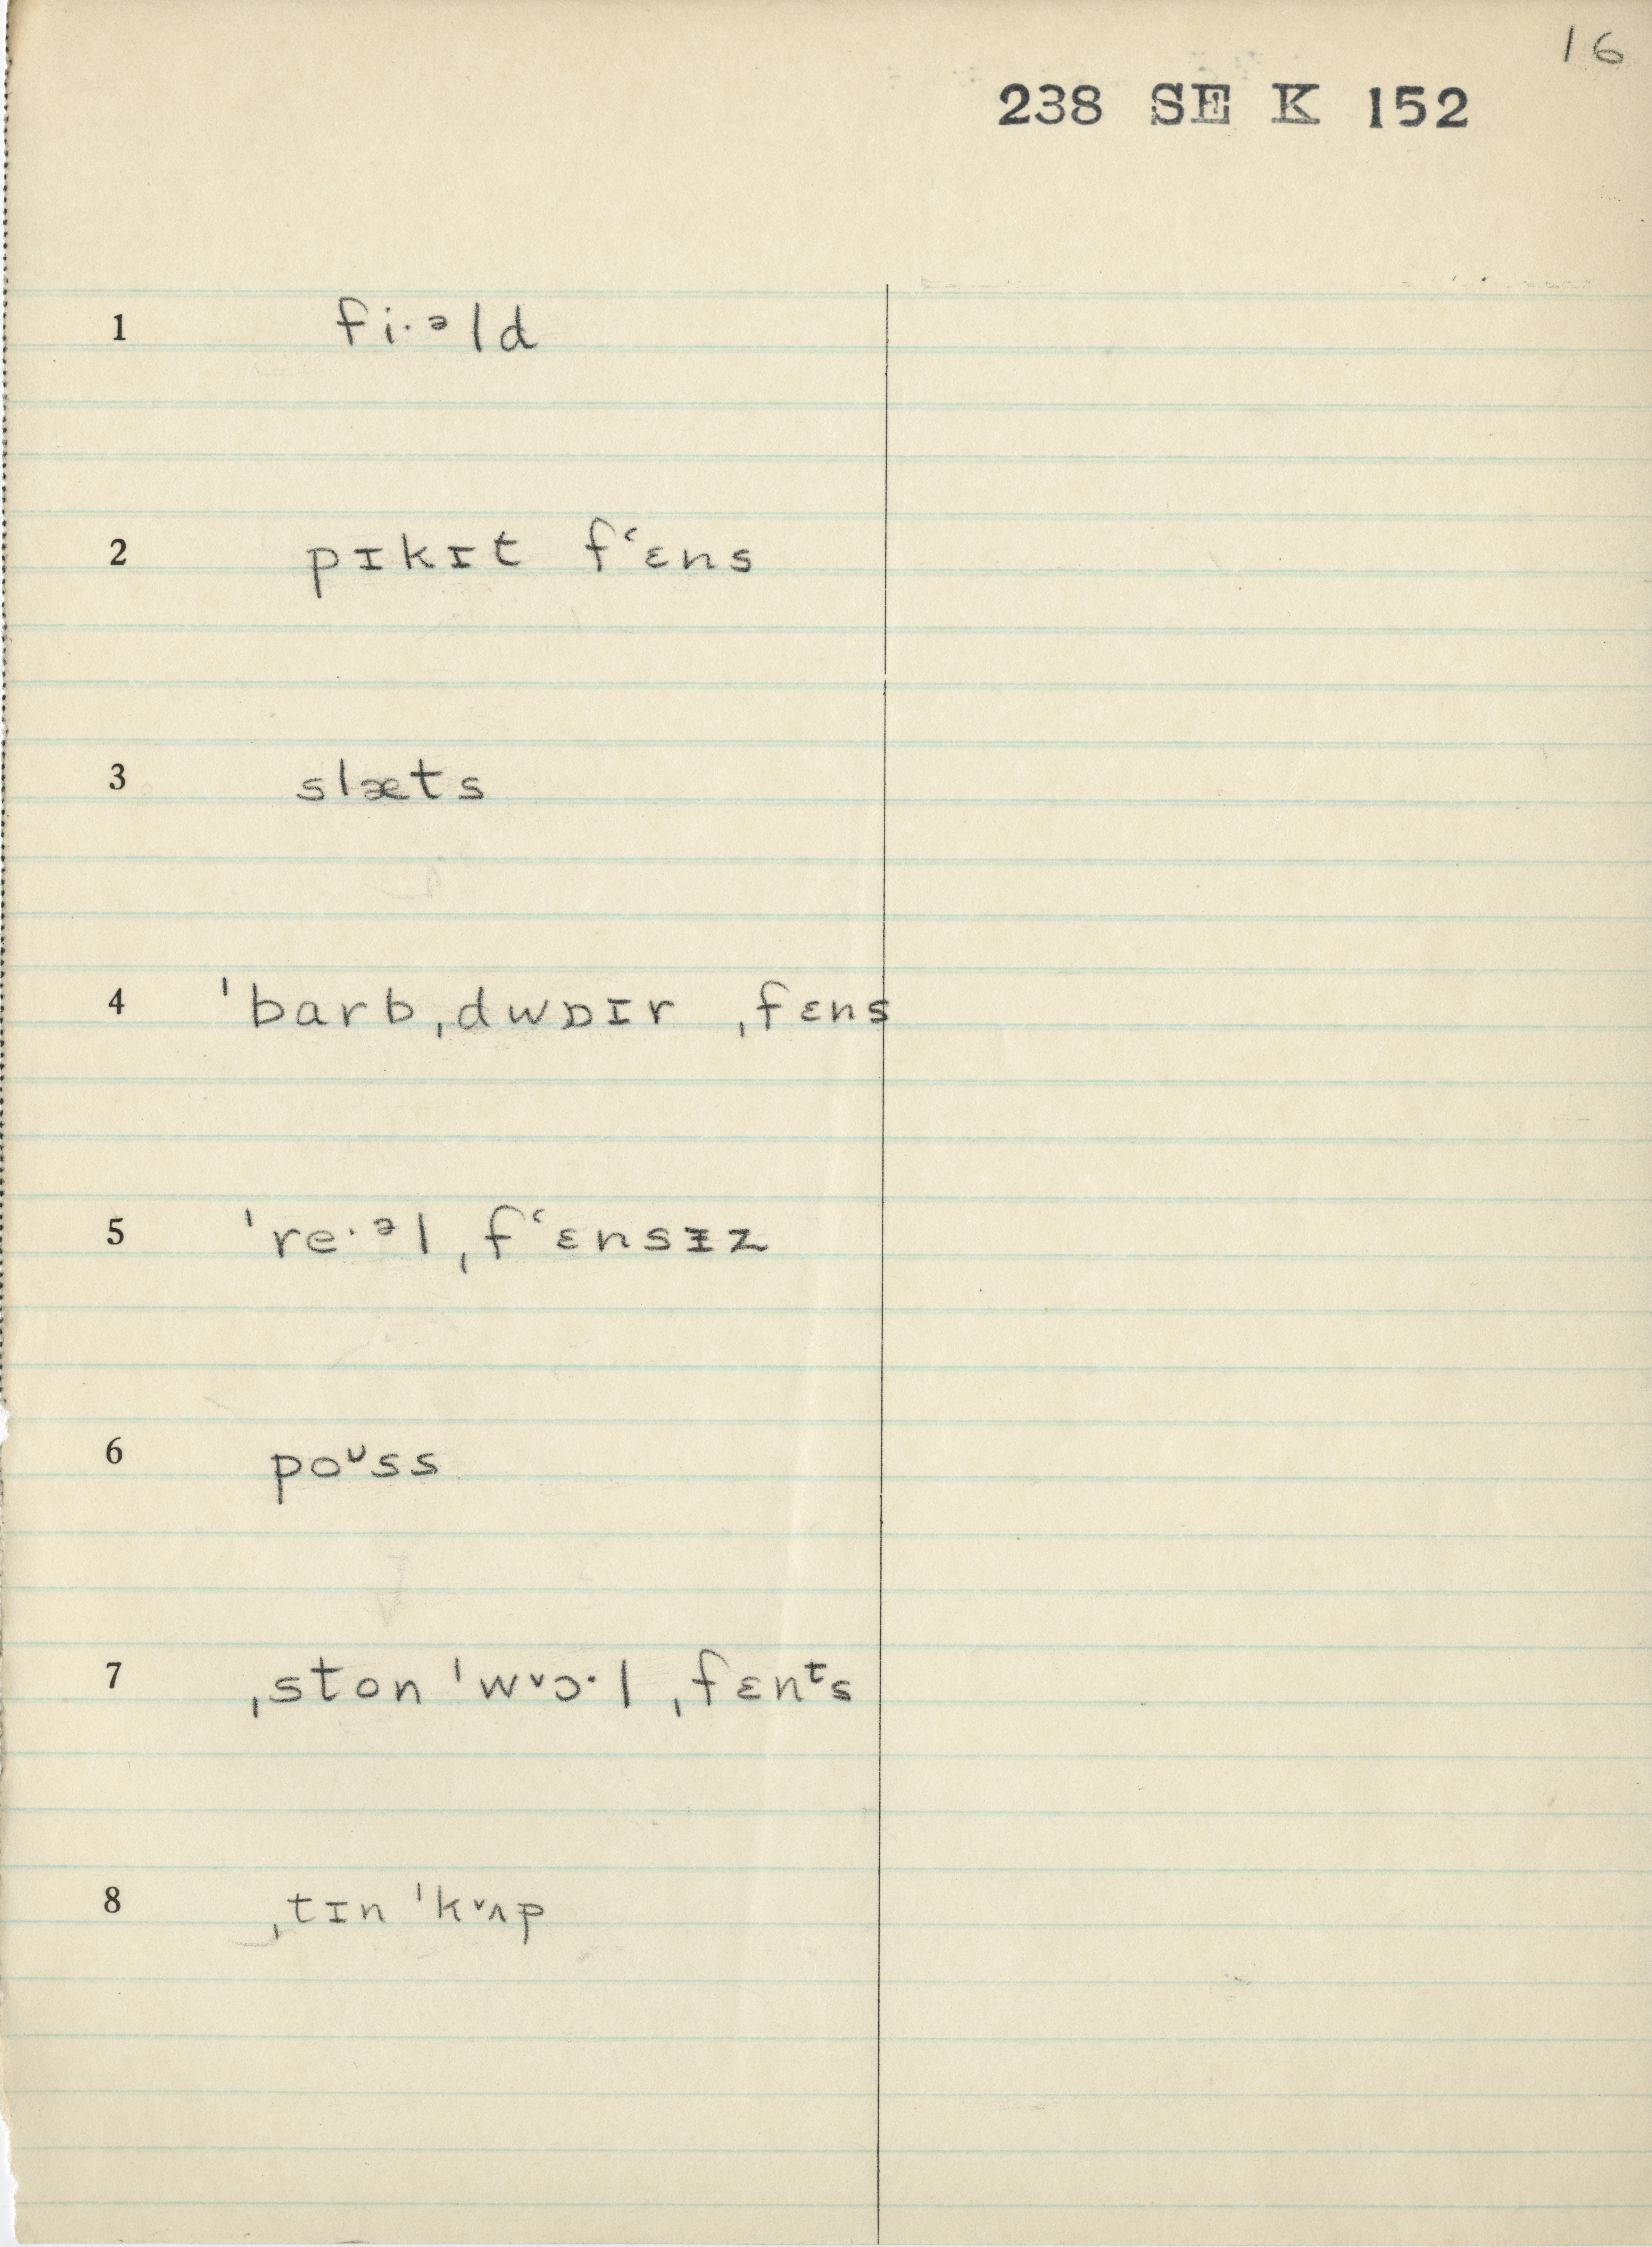 16
238 SE K 152
1 fi·ᵊld
2 pɪkɪt fʿɛns
3 slæts
4 ˈbarbˌdwɒɪr ˌfɛns
5 ˈre·ᵊlˌfʿɛnsᵻz
6 poᶷss
7 ˌston ˈw˅ɔ·l ˌfɛnᵗs
8 ˌtɪn ˈk˅ʌp